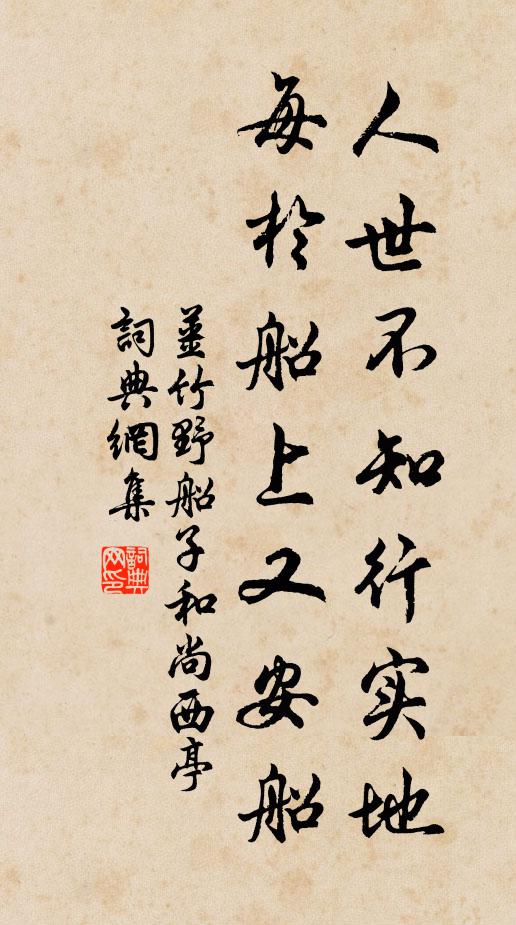 人世不知行实地
每於船上又安船
葉竹野船子和尚西亭
詞典網集
詞典网印